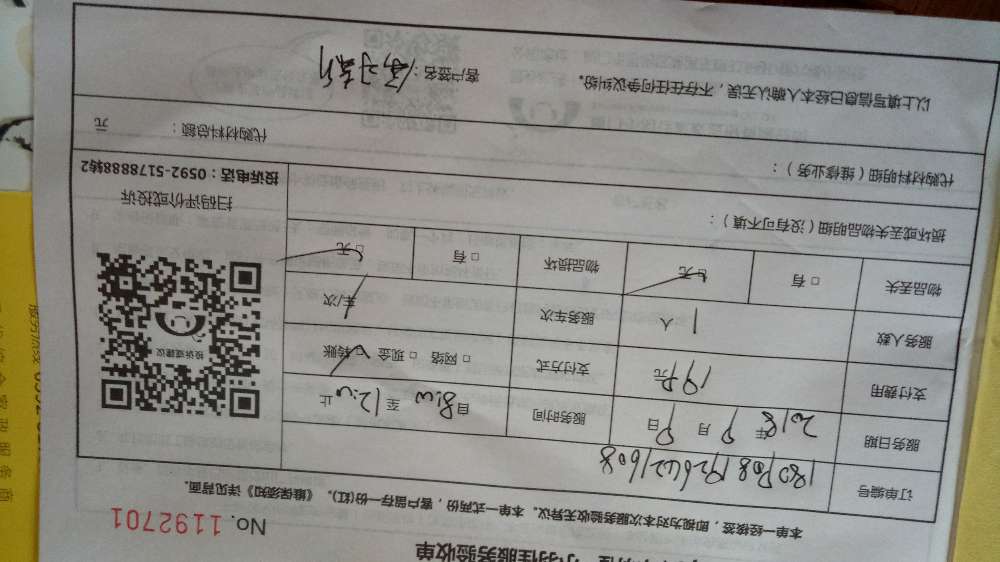 小羽佳服务验收单
No. 1192701
本单一经接签，即视为对本次服务验收无异议。本单一式两份，客户留存一份(红)。《维保须知》详见背面。
订单编号
服务日期 2018年 9月 9日 服务时间 自8:00 至12:00 止
支付费用 支付方式 □ 网络 □ 现金 □ 转账
服务人数 1 人 服务车次 车/次
物品丢失 □ 有 □ 无 物品损坏 □ 有 □ 无
投诉或建议
扫码评价或投诉
投诉电话：0592-5178888转2
损坏或丢失物品明细（没有可不填）：
代购材料明细（维修业务）： 代购材料总额： 元
以上填写信息已经本人确认无误，不存在任何争议纠纷。 客户签名：